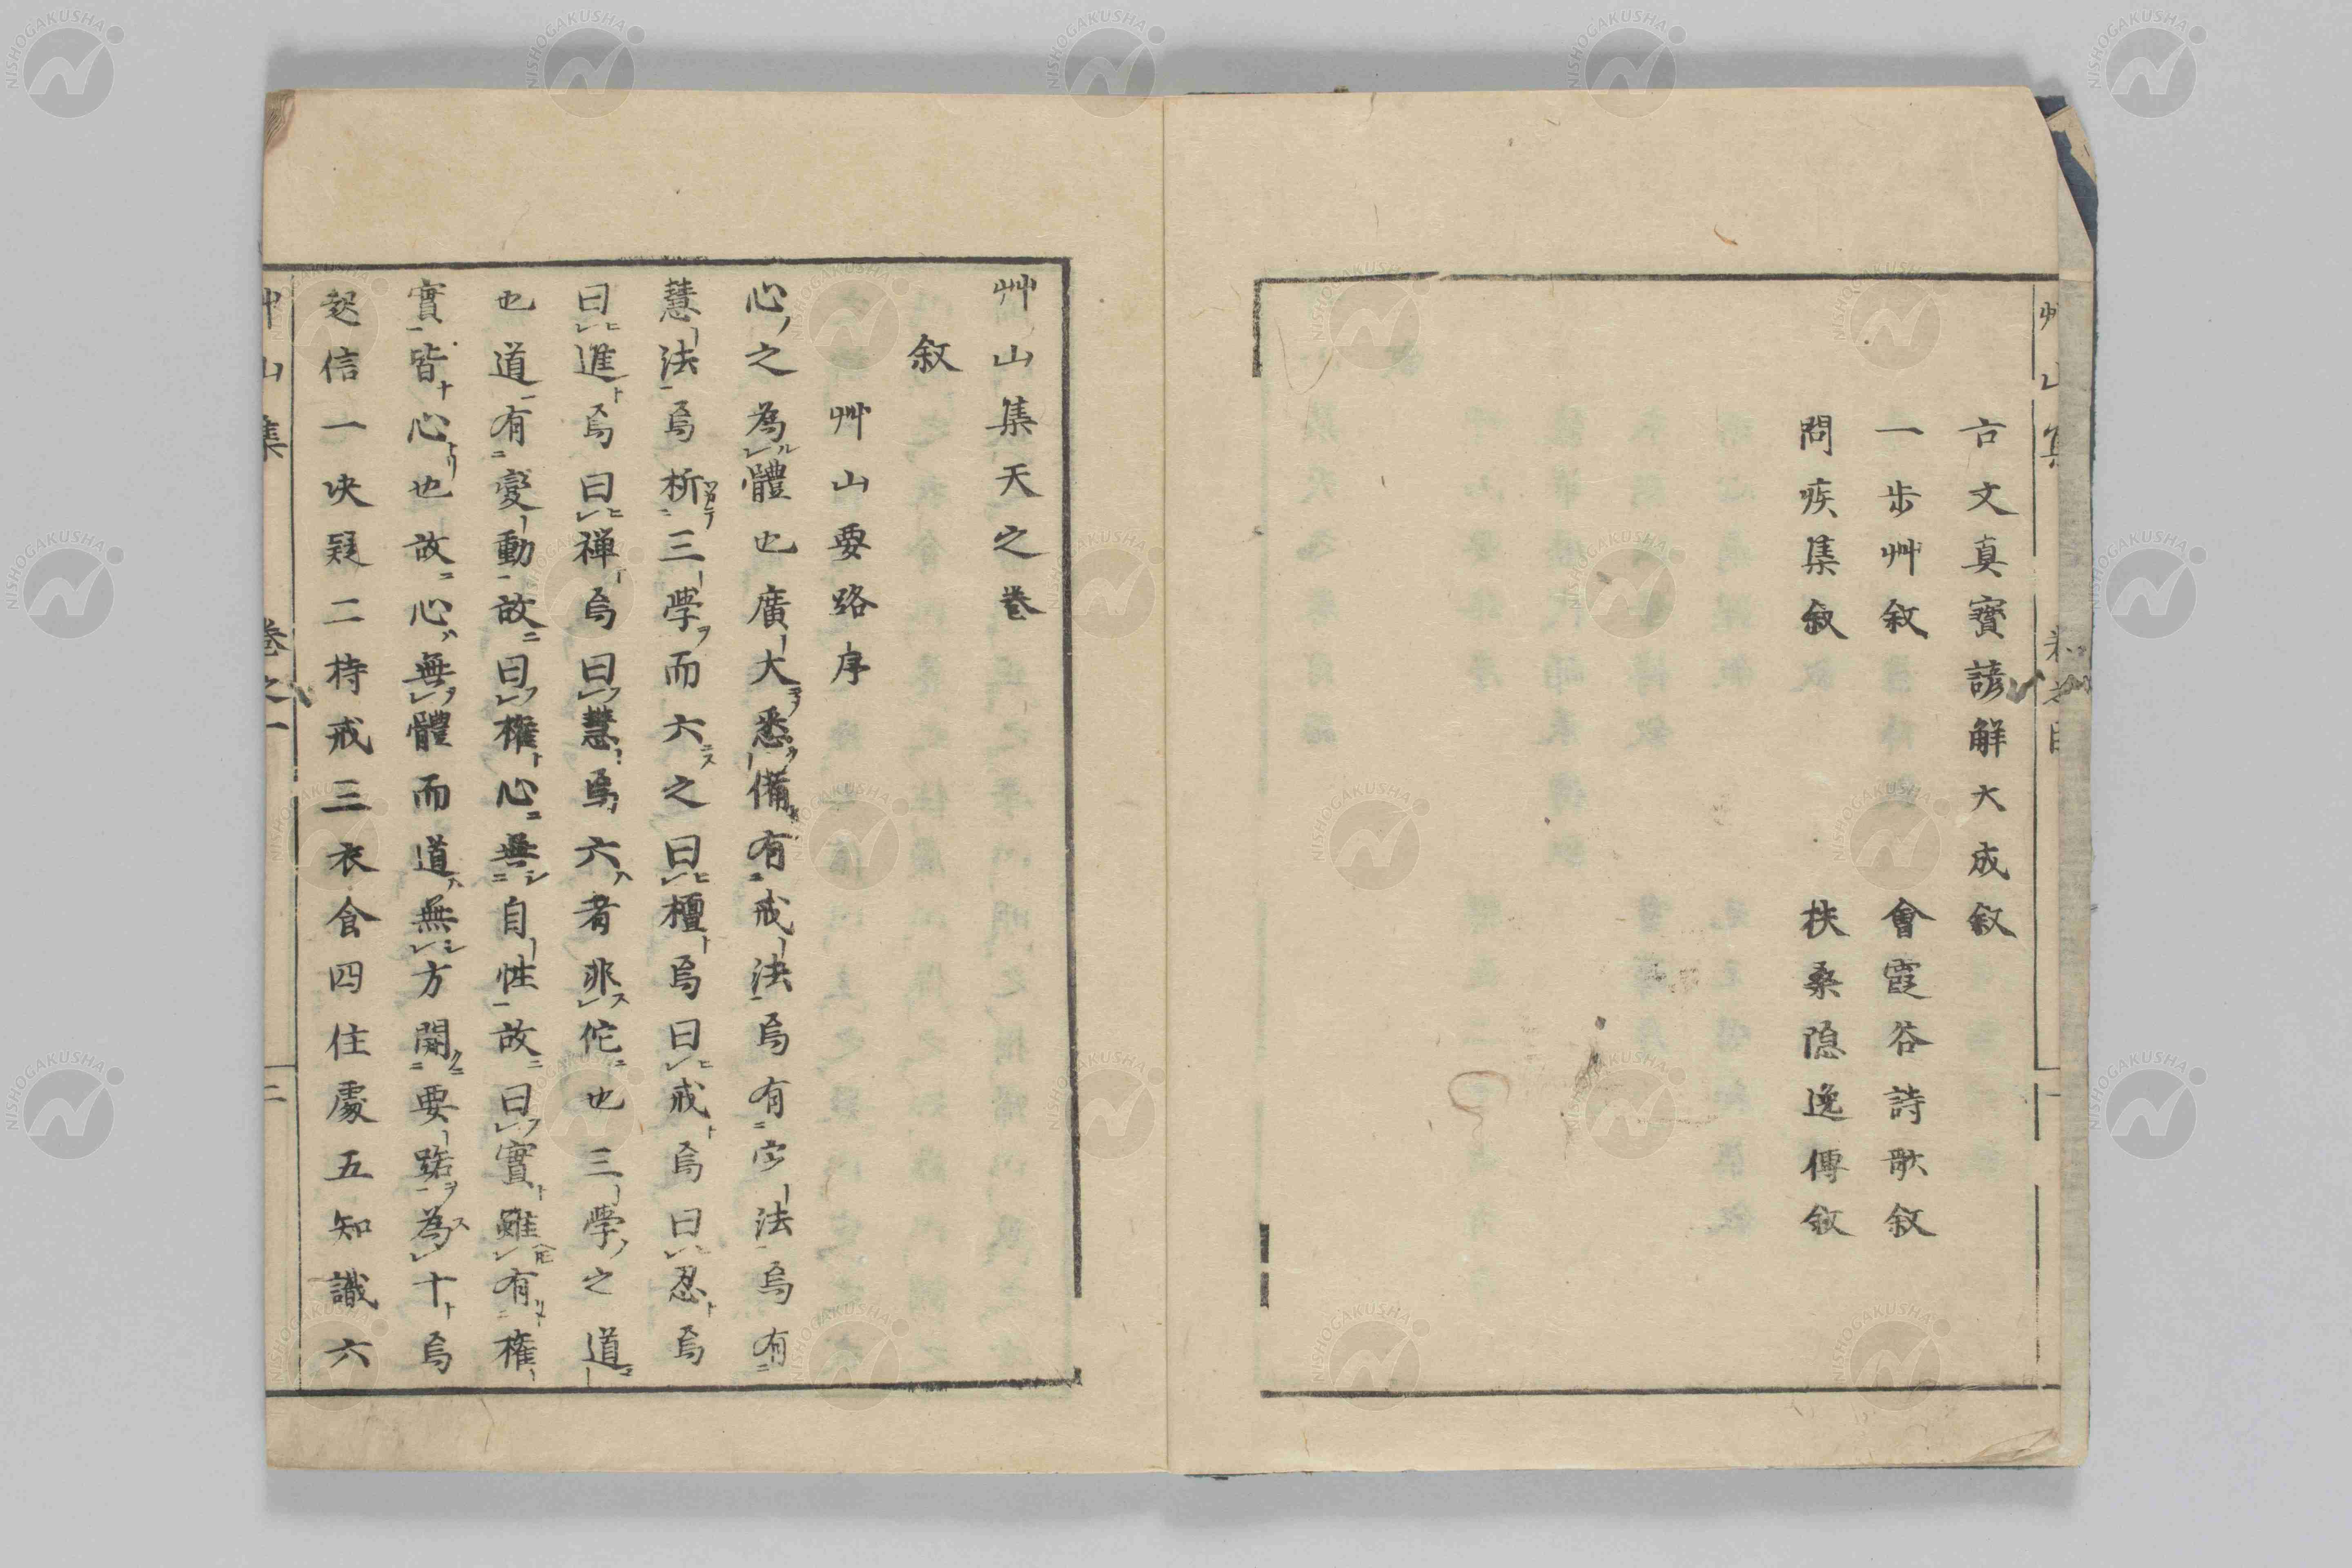 古文真寳諺解大成叙
一步艸叙 會霞谷詩歌叙
問疾集叙 扶桑隠逸傳叙
艸山集天之巻
叙
艸山要路序
心之為體也廣大悉備有戒法焉有定法焉有
慧法焉析三學而六之曰檀焉曰戒焉曰忍焉
曰進焉曰禅焉曰慧焉六者非佗也三學之道
也道有變動故曰權心無自性故曰實雖有權
實皆心也故心無體而道無方開要路為十焉
起信一决疑二持戒三衣食四住處五知識六
艸山集 巻之一 二
NISHOGAKUSHA